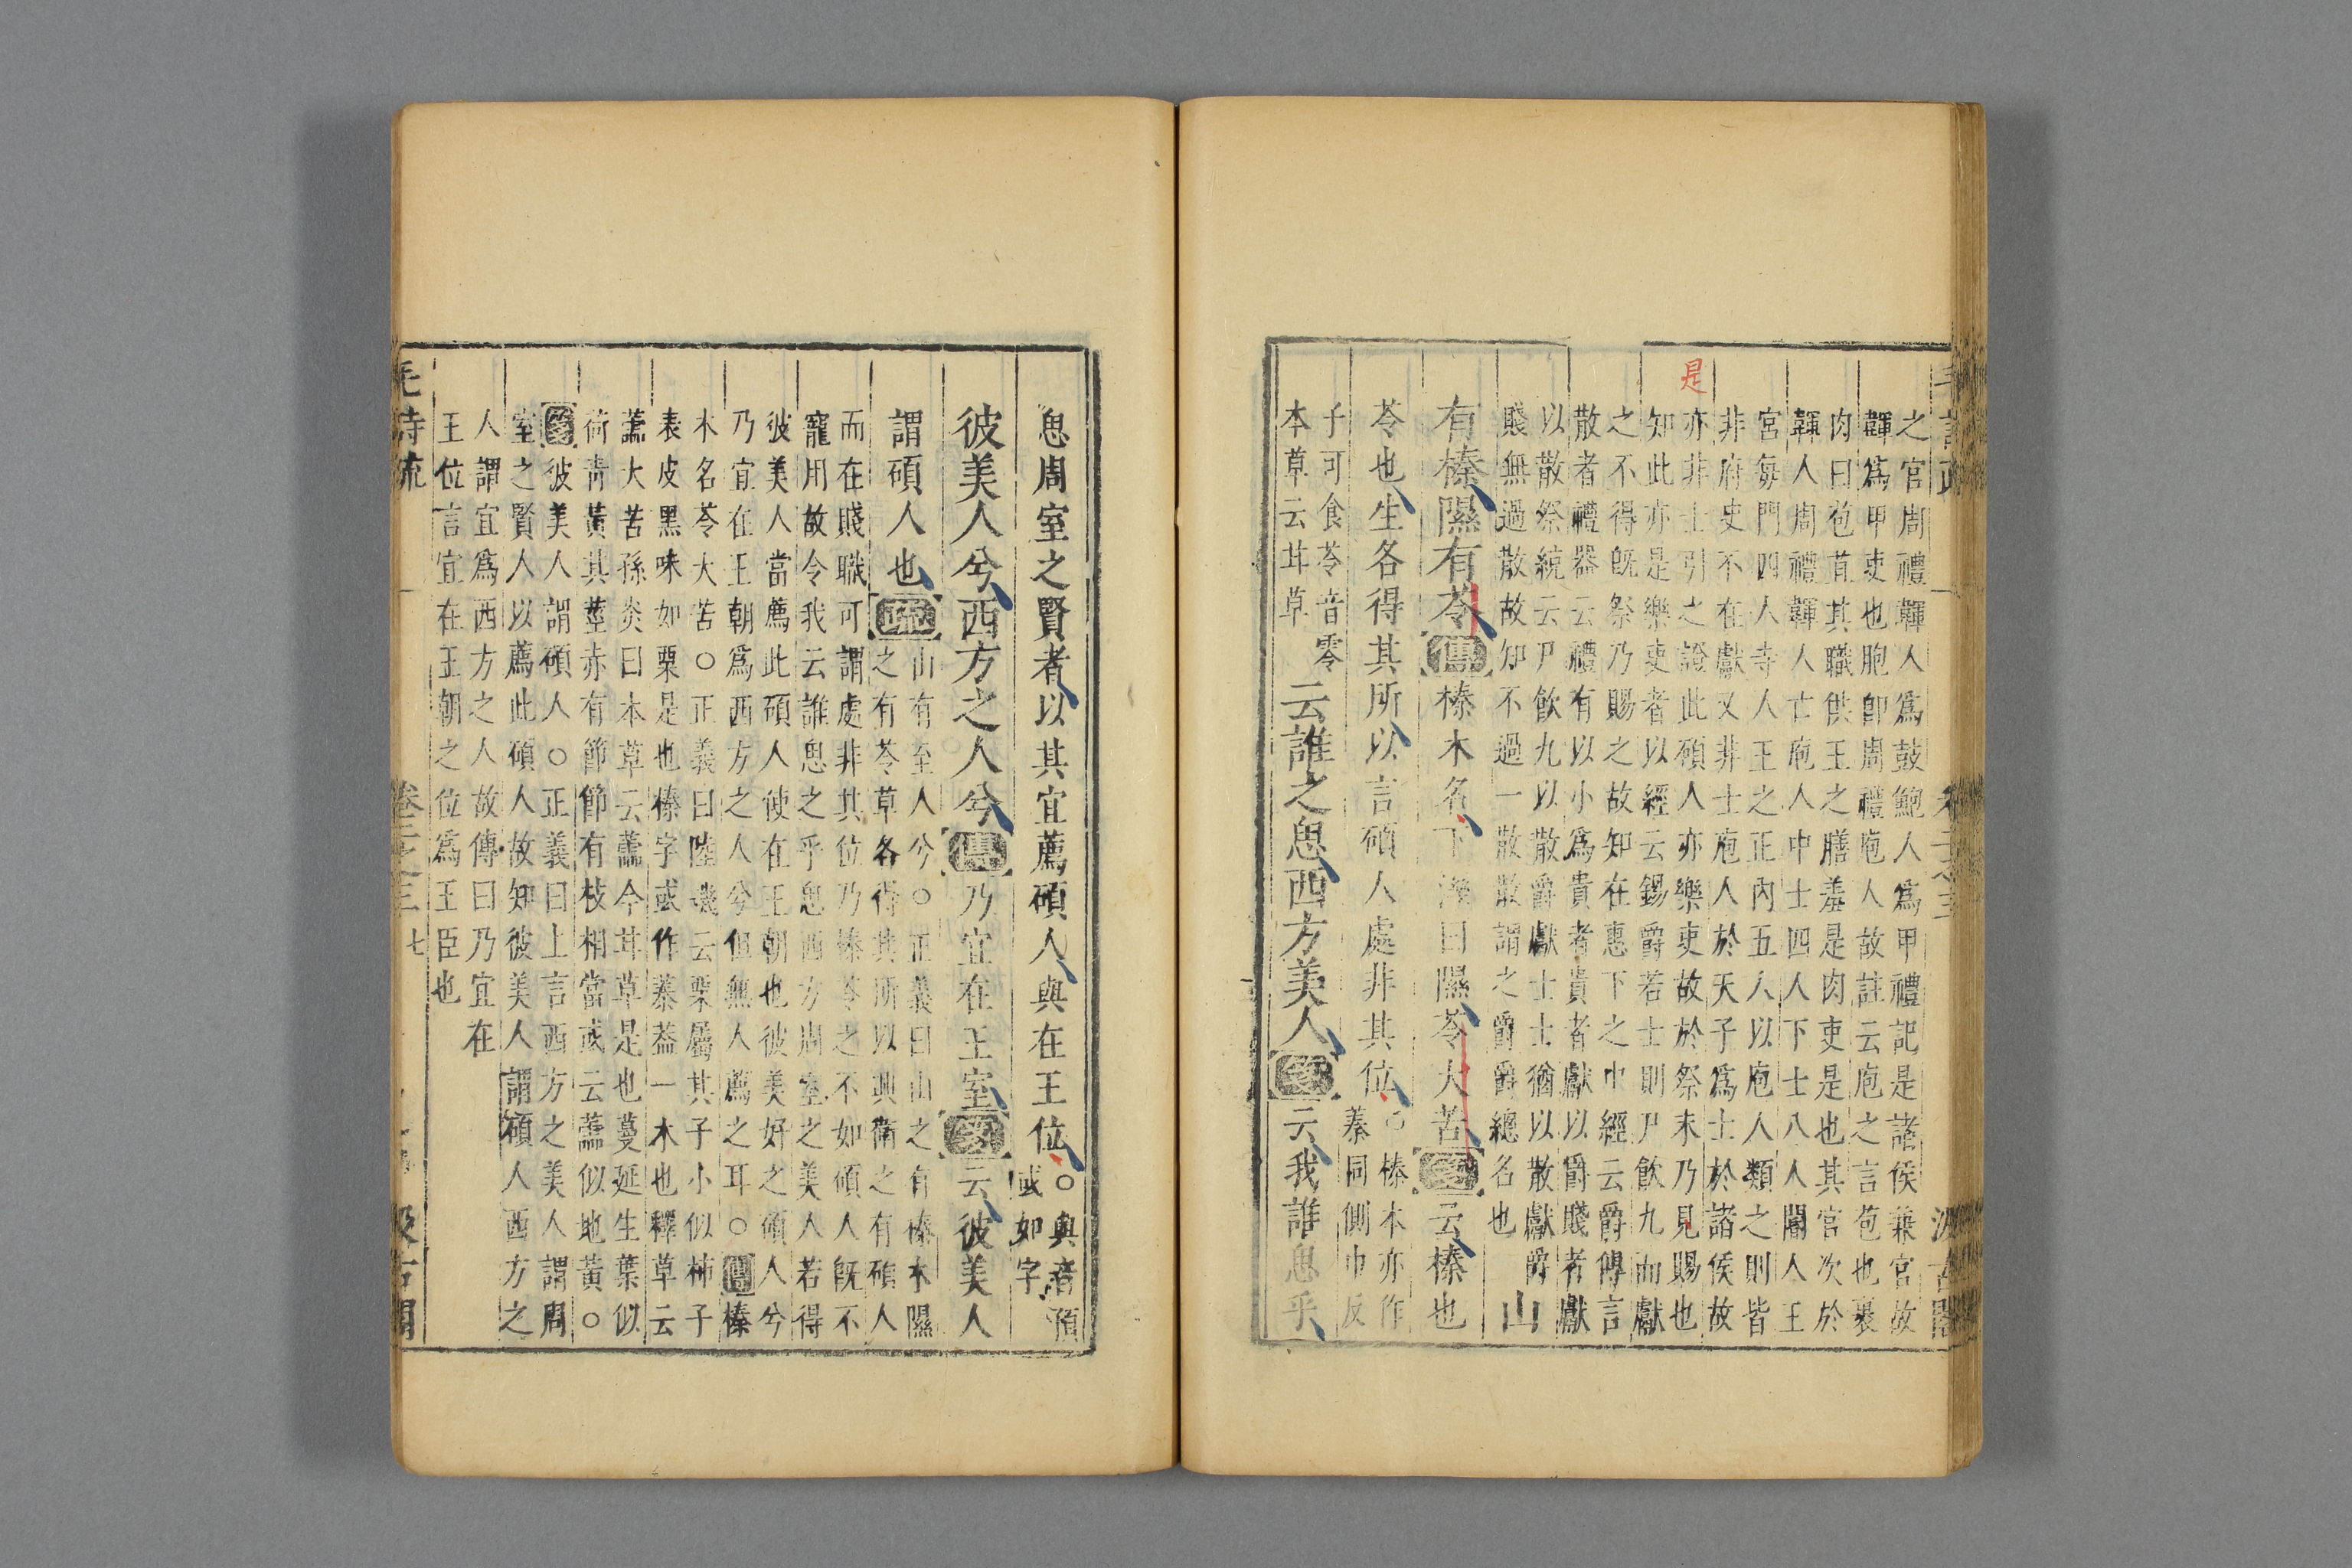 之官周禮韗人爲鼓鮑人爲甲禮記是諸侯兼官故
韗爲甲吏也胞卽周禮庖人故註云庖之言苞也裹
肉曰苞苴其職供王之膳羞是肉吏是也其官次於
韗人周禮韗人亡庖人中士四人下士八人閽人王
宮每門四人寺人王之正內五人以庖人類之則皆
非府史不在獻又非士庖人於天子爲士於諸侯故
亦非士引之證此碩人亦樂吏故於祭末乃見賜也
是
知此亦是樂吏者以經云錫爵若士則尸飮九而獻
之不得旣祭乃賜之故知在惠下之中經云爵傳言
散者禮器云禮有以小爲貴者貴者獻以爵賤者獻
以散祭統云尸飮九以散爵獻士士猶以散獻爵
賤無過散故知不過一散散謂之爵爵總名也 山
有榛隰有苓傳榛木名下濕曰隰苓大苦箋云榛也
苓也生各得其所以言碩人處非其位○榛本亦作
蓁同側巾反
子可食苓音零
本草云甘草
云誰之思西方美人箋云我誰思乎
思周室之賢者以其宜薦碩人與在王位○與音預
或如字
彼美人兮西方之人兮傳乃宜在王室箋云彼美人
謂碩人也疏山有至人兮○正義曰山之有榛木隰
之有苓草各得其所以興衛之有碩人
而在賤職可謂處非其位乃榛苓之不如碩人旣不
寵用故令我云誰思之乎思西方周室之美人若得
彼美人當薦此碩人使在王朝也彼美好之碩人兮
乃宜在王朝爲西方之人兮但無人薦之耳○傳榛
木名苓大苦○正義曰陸機云栗屬其子小似柿子
表皮黑味如栗是也榛字或作蓁蓋一木也釋草云
蘦大苦孫炎曰本草云蘦今甘草是也蔓延生葉似
荷靑黃其莖赤有節節有枝相當或云蘦似地黃○
箋彼美人謂碩人○正義曰上言西方之美人謂周
室之賢人以薦此碩人故知彼美人謂碩人西方之
人謂宜爲西方之人故傳曰乃宜在
王位言宜在王朝之位爲王臣也
毛詩疏 卷二之三 七 汲古閣